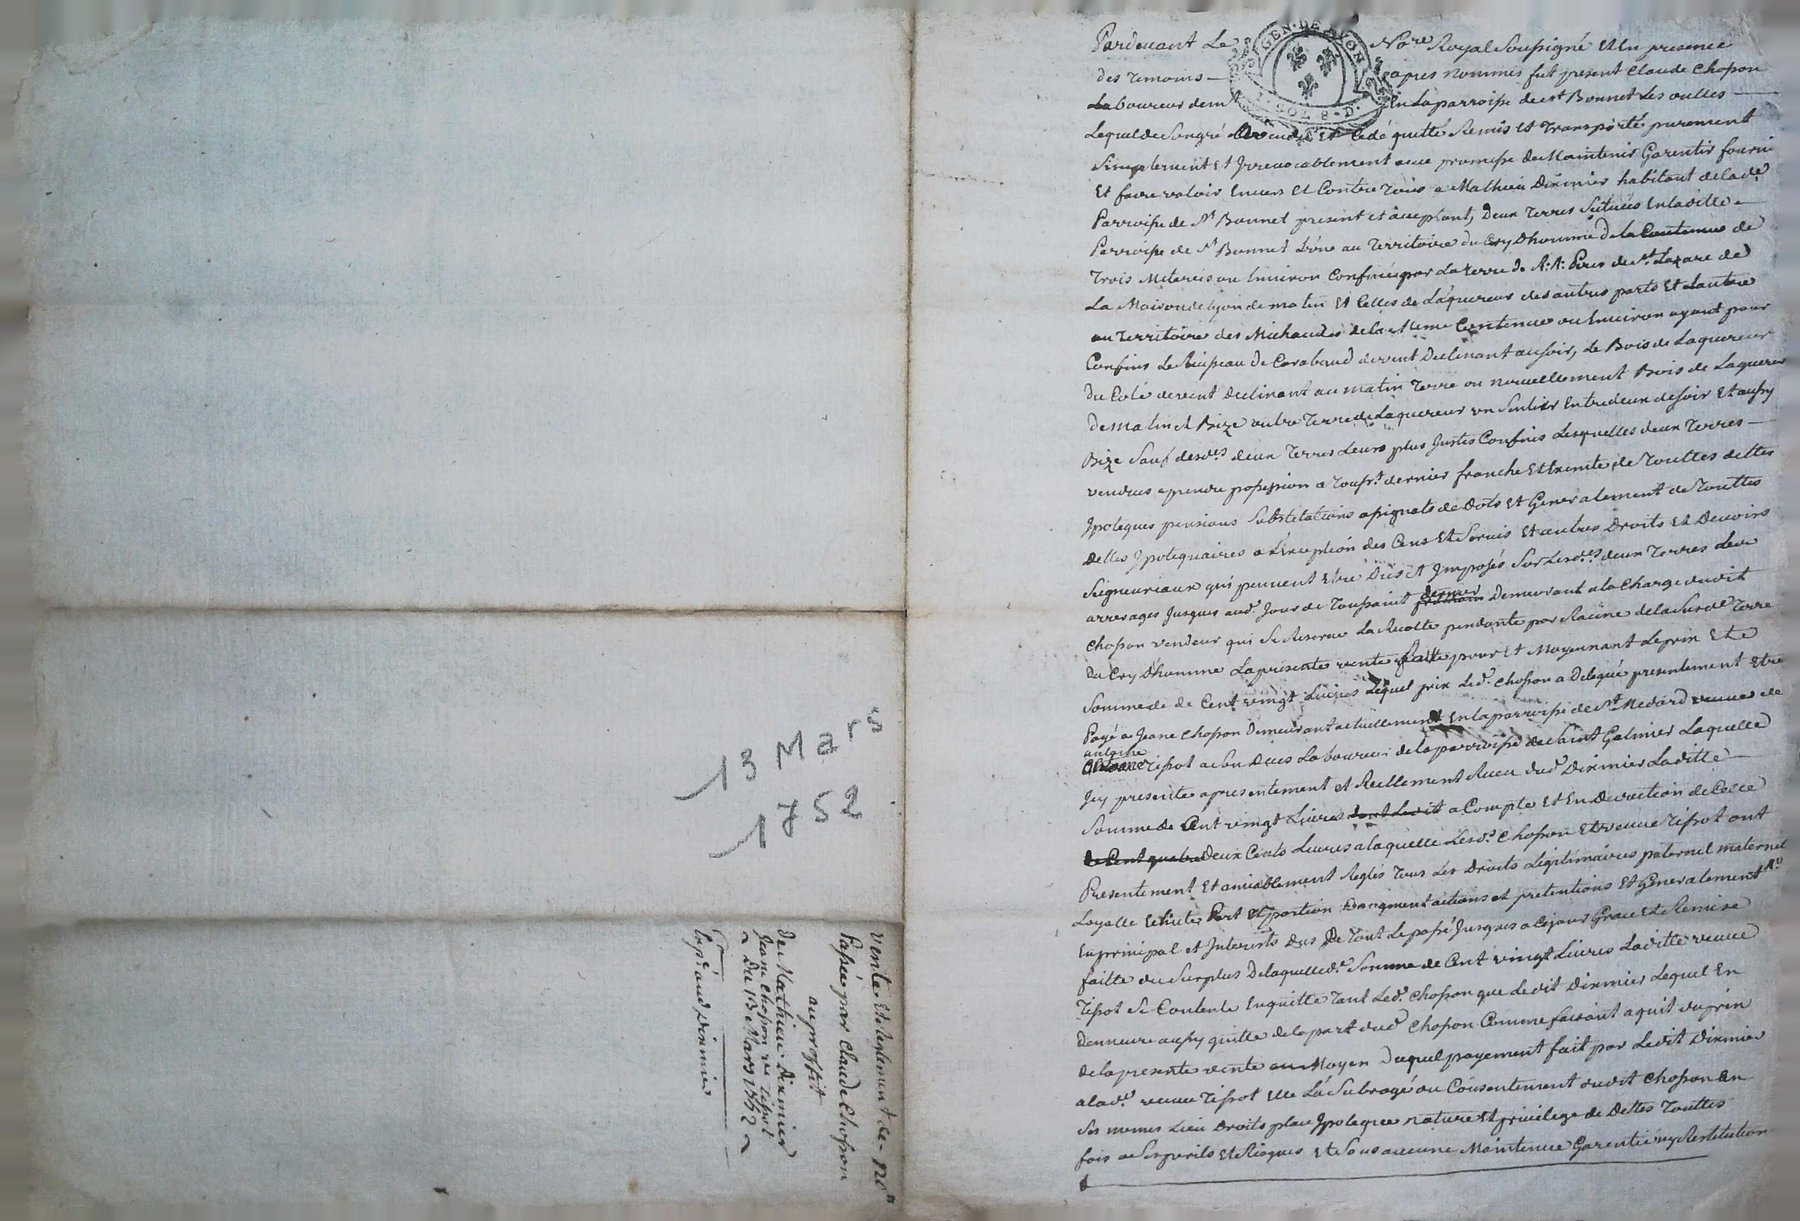 13 Mars
1752
vente Et Reglement de 120ᵗᵗ
Passée par Claude Chosson
au proffit
de Mathieu Dixmier
Jeane Chosson ve Tissot
Du 13e Mars 1752
GEN. DE LYON
SOL 8. D.
Pardevant Le Nore Royal Soussigné Et En presence
des temoins apres nommés fut present Claude Chosson
Laboureur demt En La parroisse de st Bonnet Les oulles
Lequel de Son gré a vendu Et Cedé quitté Remis Et Transporté purement
Simplement Et Irrevocablement avec promesse de Maintenir Garentir fournir
Et faire valoir Envers Et Contre Tous a Mathieu Dixmier habitant de lade
Parroisse de St Bonnet present et acceptant, Deux Terres Scituées En laditte
Parroisse de St Bonnet L'une au Territoire du Cry Dhomme De la Contenue de
Trois Meterées ou Environ Confinée par La terre de R: R: Peres de St Lazare de
La Maison de Lyon de matin Et Celles de L'aquereur des autres parts Et L'autre
au Territoire des Michaudes de la Meme Contenue ou Environ ayant pour
Confins Le Ruisseau De Carabaud de vent Declinant au soir, Le Bois de Laquereur
Du Coté de vent Declinant au matin Terre ou nouvellement Bois de Laquereur
De matin et Bize autre Terre de Laquereur un Sentier Entredeux de soir Et aussy
Bize Sauf desdes deux Terres Leurs plus Justes Confins Lesquelles deux Terres
vendues a prendre possession a Touss.t dernier franche Et Exempte de Touttes dettes
Ipoteques pensions Substitutions assignats de Dots Et Generalement de Touttes
dettes Ipotequaires a L'exception des Cens Et Servis Et autres Droits Et Devoirs
Seigneuriaux qui peuvent Etre Dus Et Imposés Sur Lesdes deux Terres Leur
arrerages Jusques aud. Jour de Toussaint dernier Demeurant a la Charge dudit
Chosson vendeur qui Se Reserve La Recolte pendante par Racine de la Susde Terre
du Cry D'homme La presente vente faitte pour Et Moyennant Le prix Et
Somme de Cent vingt Livres Lequel prix Led. Chosson a Delegué presentement Etre
Payé a Jeane Chosson Demeurant actuellement En la parroisse de St Medard veuve de
antoine Tissot a Son Dives Laboureur de la parroisse de Saint Galmier Laquelle
Icy presente a presentement et Reellement Receu dud. Dixmier Laditte
Somme de Cent vingt Livres a Compte Et En Deduction de Celle
Deux Cents Livres a laquelle Lesd. Chosson Et veuve Tissot ont
Presentement Et amiablement Reglés Tous Les Droits Legitimaires paternel maternel
Loyalle Echute Part Et portion augment actions et pretentions Et Generalement
En principal et Interests Dus De Tout Le passé Jusques a Ce jour Grace Et Remise
faitte du Surplus De laquelle de Somme de Cent vingt Livres Laditte veuve
Tissot Se Contente En quitte Tant Led. Chosson que Ledit Dixmier Lequel En
Demeure aussy quitte de la part dud. Chosson Comme faisant a quit du prix
de la presente vente au Moyen Duquel payement fait par Ledit Dixmier
a lade veuve Tissot Elle L'a Subrogé du Consentement dudit Chosson En
Ses memes Lieu Droits place Ipoteque nature Et privilege de Dettes Touttes
fois a Ses perils Et Risques Et Sous aucune Maintenue Garentie ny Restitution